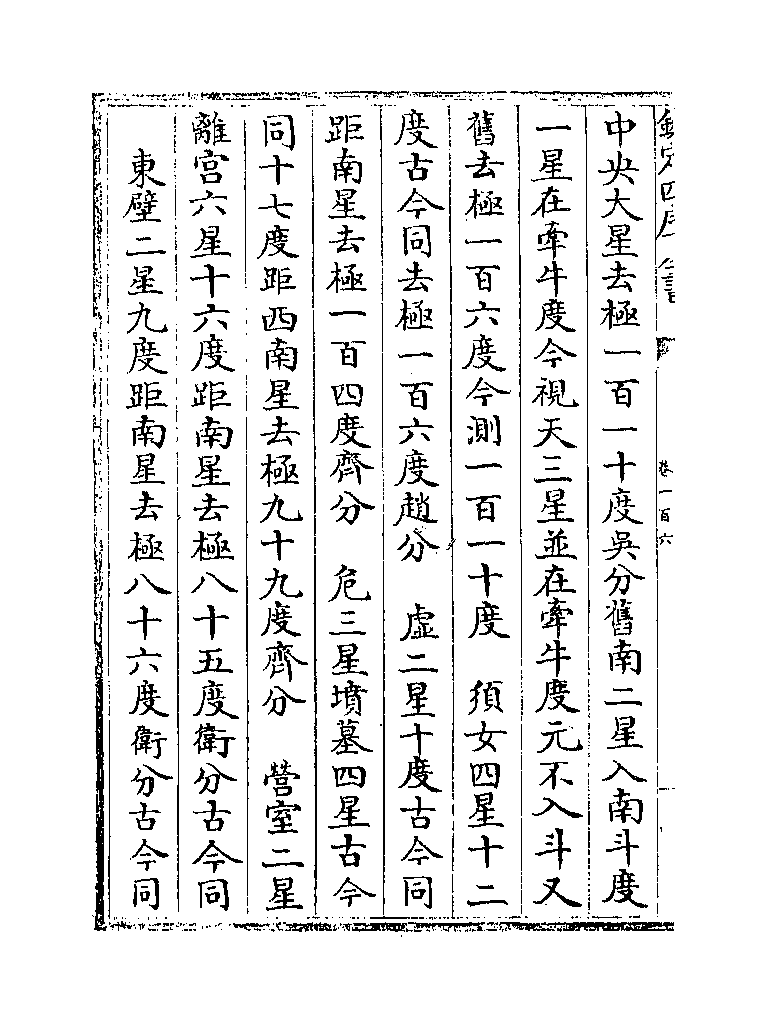 欽定四庫全書
卷一百六
中央大星去極一百一十度吳分舊南二星入南斗度
一星在牽牛度今視天三星並在牽牛度元不入斗又
舊去極一百六度今測一百一十度　須女四星十二
度古今同去極一百六度趙分　虛二星十度古今同
距南星去極一百四度齊分　危三星墳墓四星古今
同十七度距西南星去極九十九度齊分　營室二星
離宮六星十六度距南星去極八十五度衛分古今同
東壁二星九度距南星去極八十六度衛分古今同